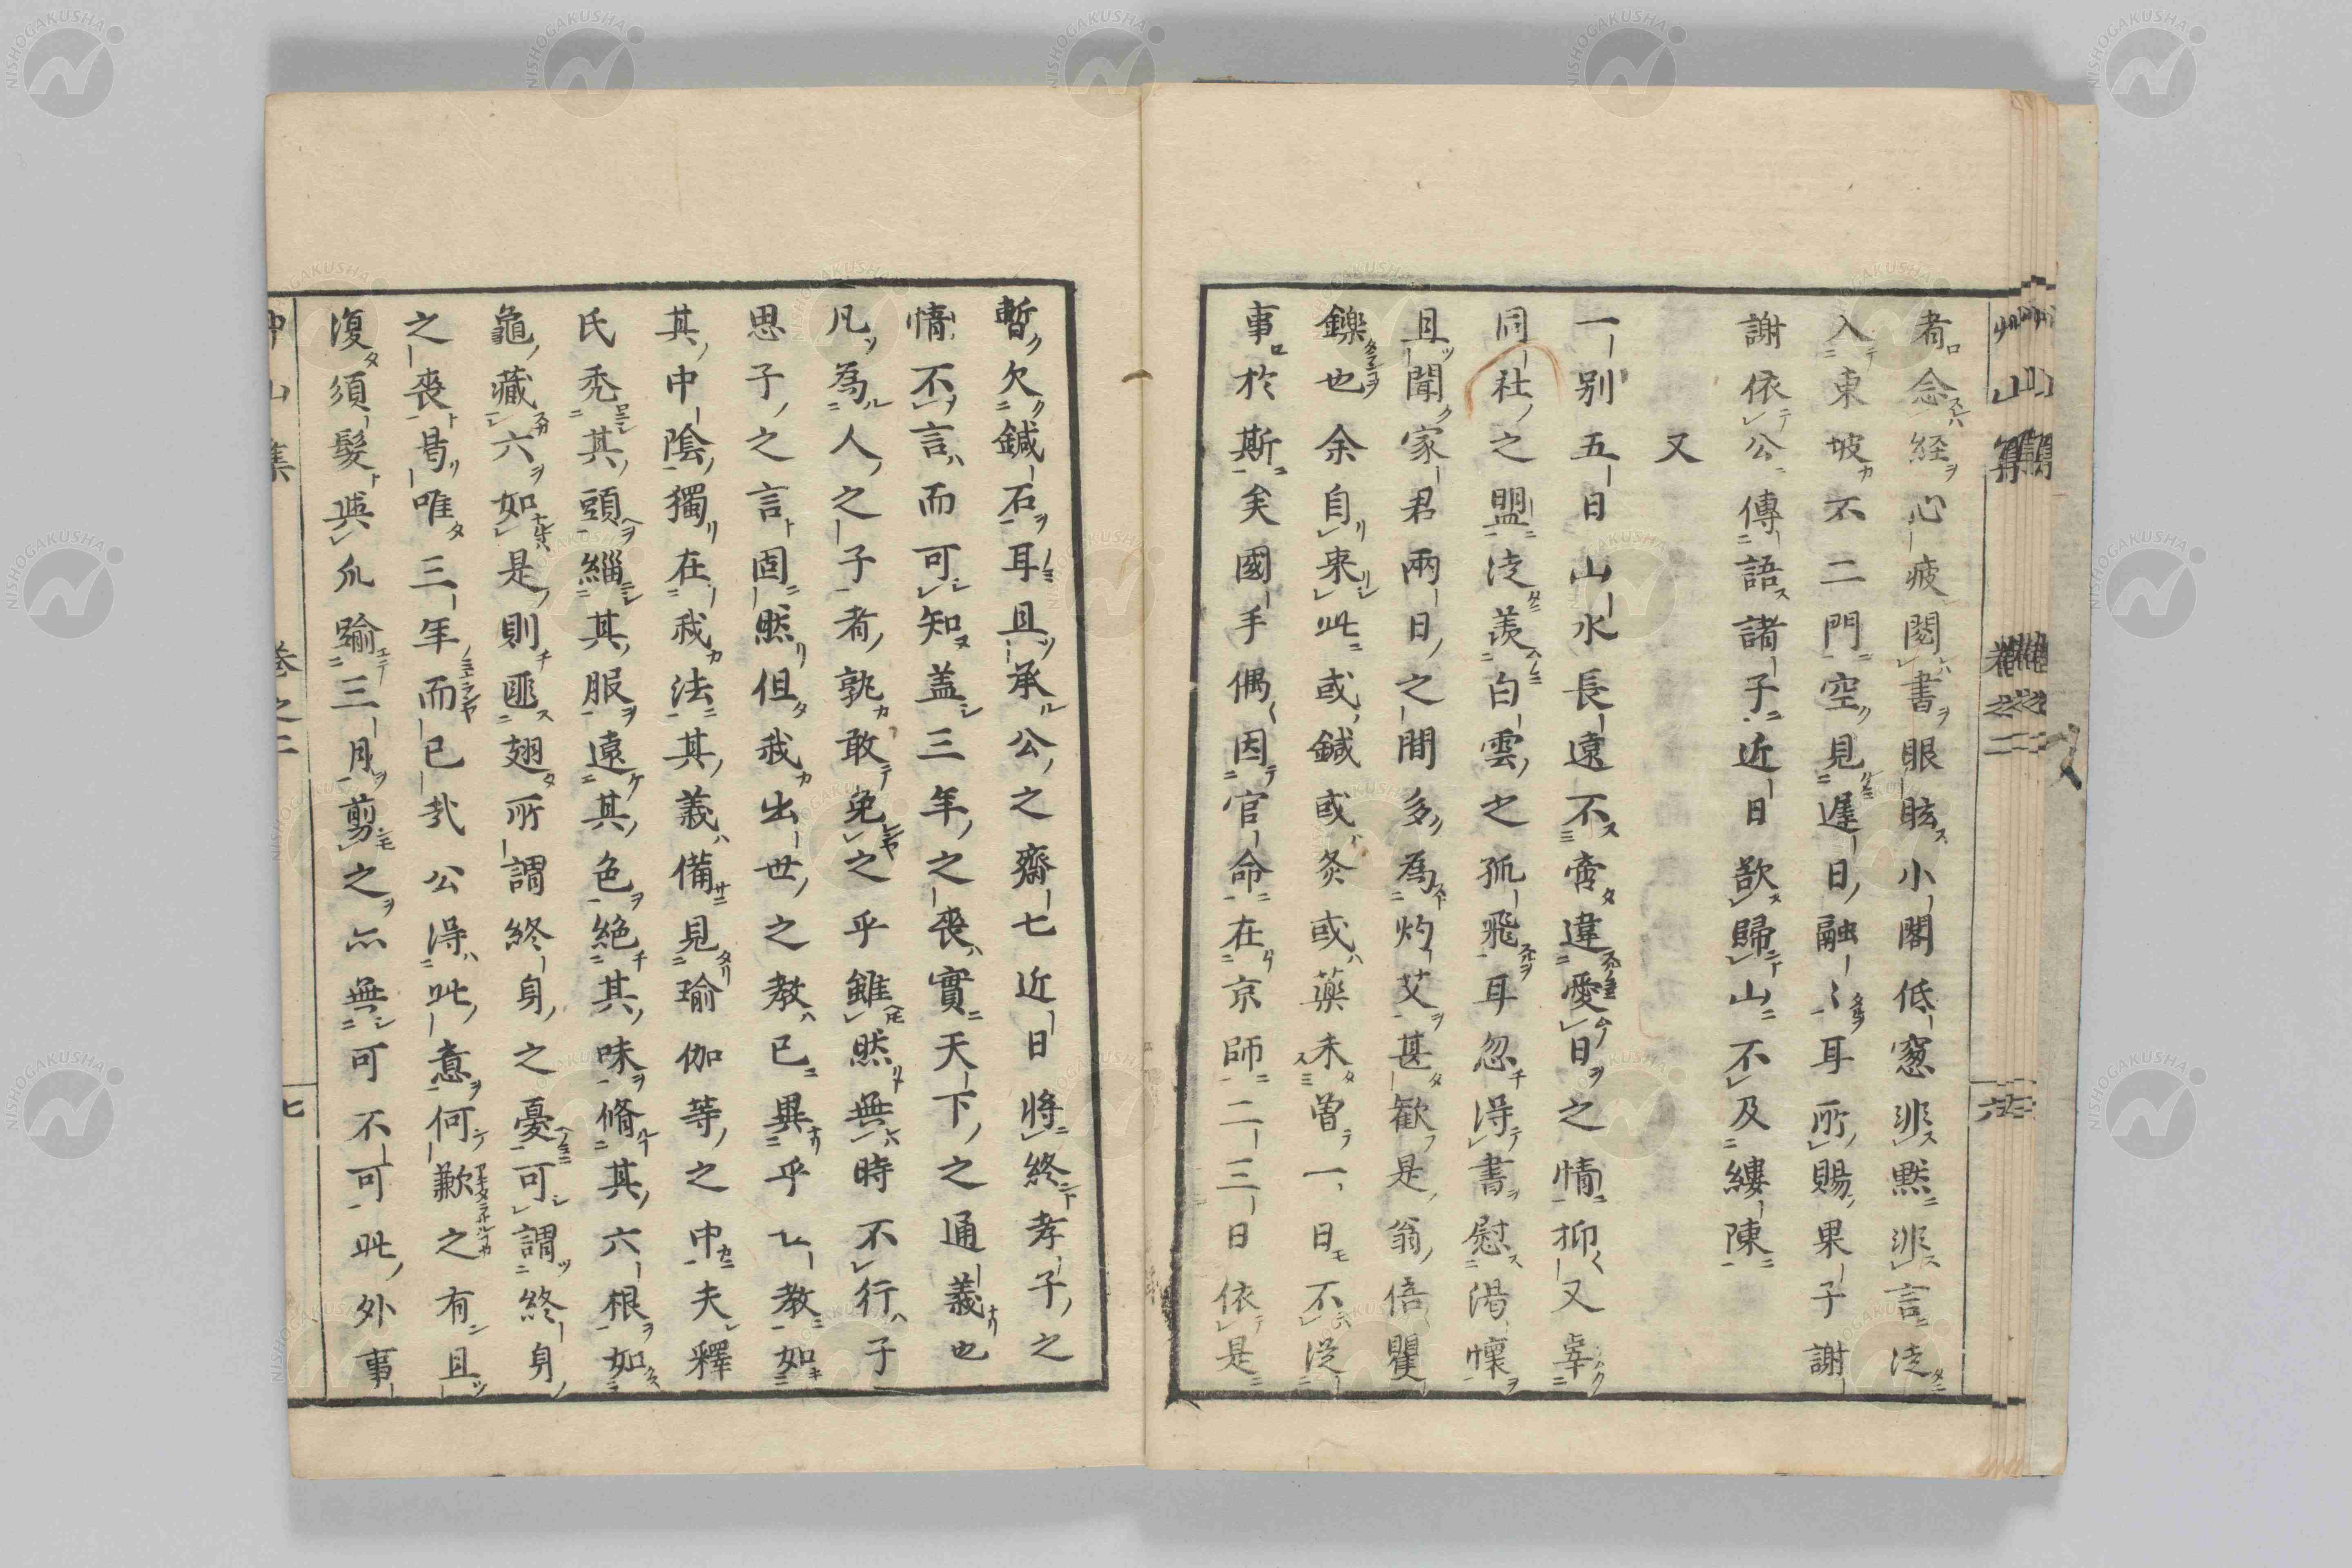 者念経心疲閲書眼眩小閣低窓非黙非言浅
入東坡不二門空見遅日融〻耳所賜果子謝
謝依公傳語諸子近日歆歸山不及縷陳
又
一別五日山水長遠不啻違愛日之情抑又辜
同社之盟浅羨白雲之孤飛耳忽得書慰渇懐
且聞家君兩日之間多為灼艾甚歓是翁倍矍
鑠也余自来此或鍼或灸或藥未曽一日不從
事於斯矣國手偶因官命在京師二三日依是
暫欠鍼石耳且承公之齋七近日將終孝子之
情不言而可知盖三年之喪實天下之通義也
凡為人之子者孰敢免之乎雖然無時不行子
思子之言固然但我出世之教已異乎七教如
其中陰獨在我法其義備見瑜伽等之中夫釋
氏禿其頭緇其服遠其色絶其味脩其六根如
龜藏六如是則匪翅所謂終身之憂可謂終身
之喪昔唯三年而已哉公得此意何歉之有且
復須髮與爪踰三月剪之亦無可不可此外事
巻之二
六
山集
巻之二
七
NISHOGAKUSHA